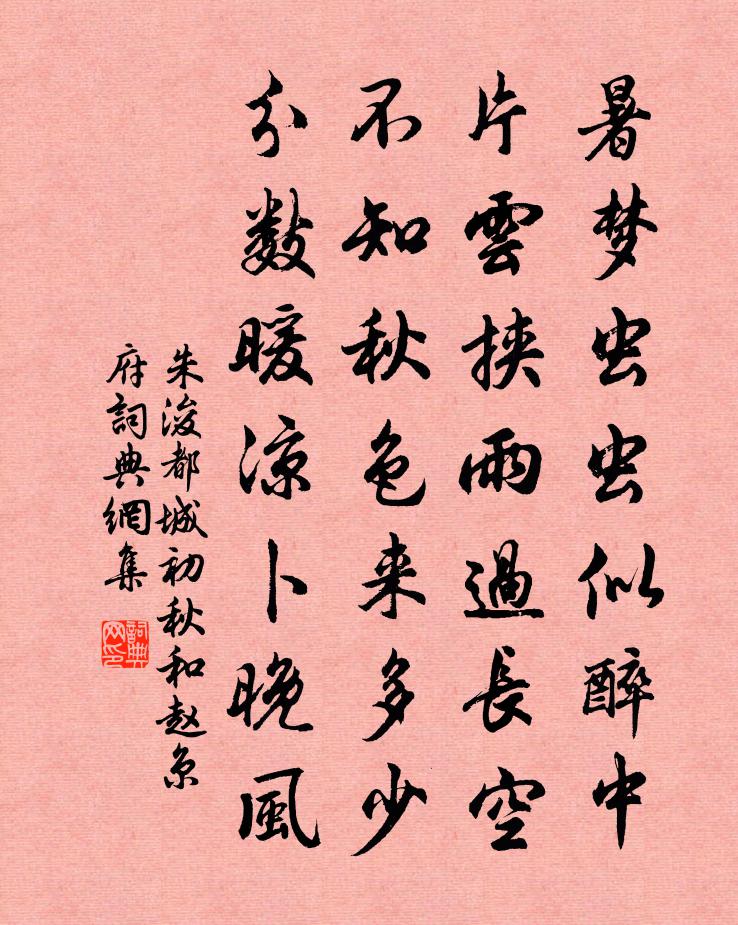 暑梦虫虫似醉中
片雲挟雨過長空
不知秋色来多少
分数暖凉卜晚風
朱浚都城初秋和赵京
府詞典網集
詞典网印